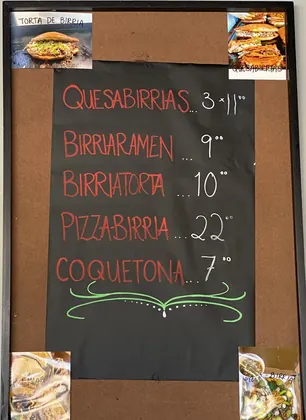 TORTA DE BIRRIA
QUESABIRRIAS
QUESABIRRIAS... 3 x 11⁰⁰
BIRRIARAMEN ... 9⁰⁰
BIRRIATORTA ... 10⁰⁰
PIZZABIRRIA ... 22⁰⁰
COQUETONA... 7⁰⁰